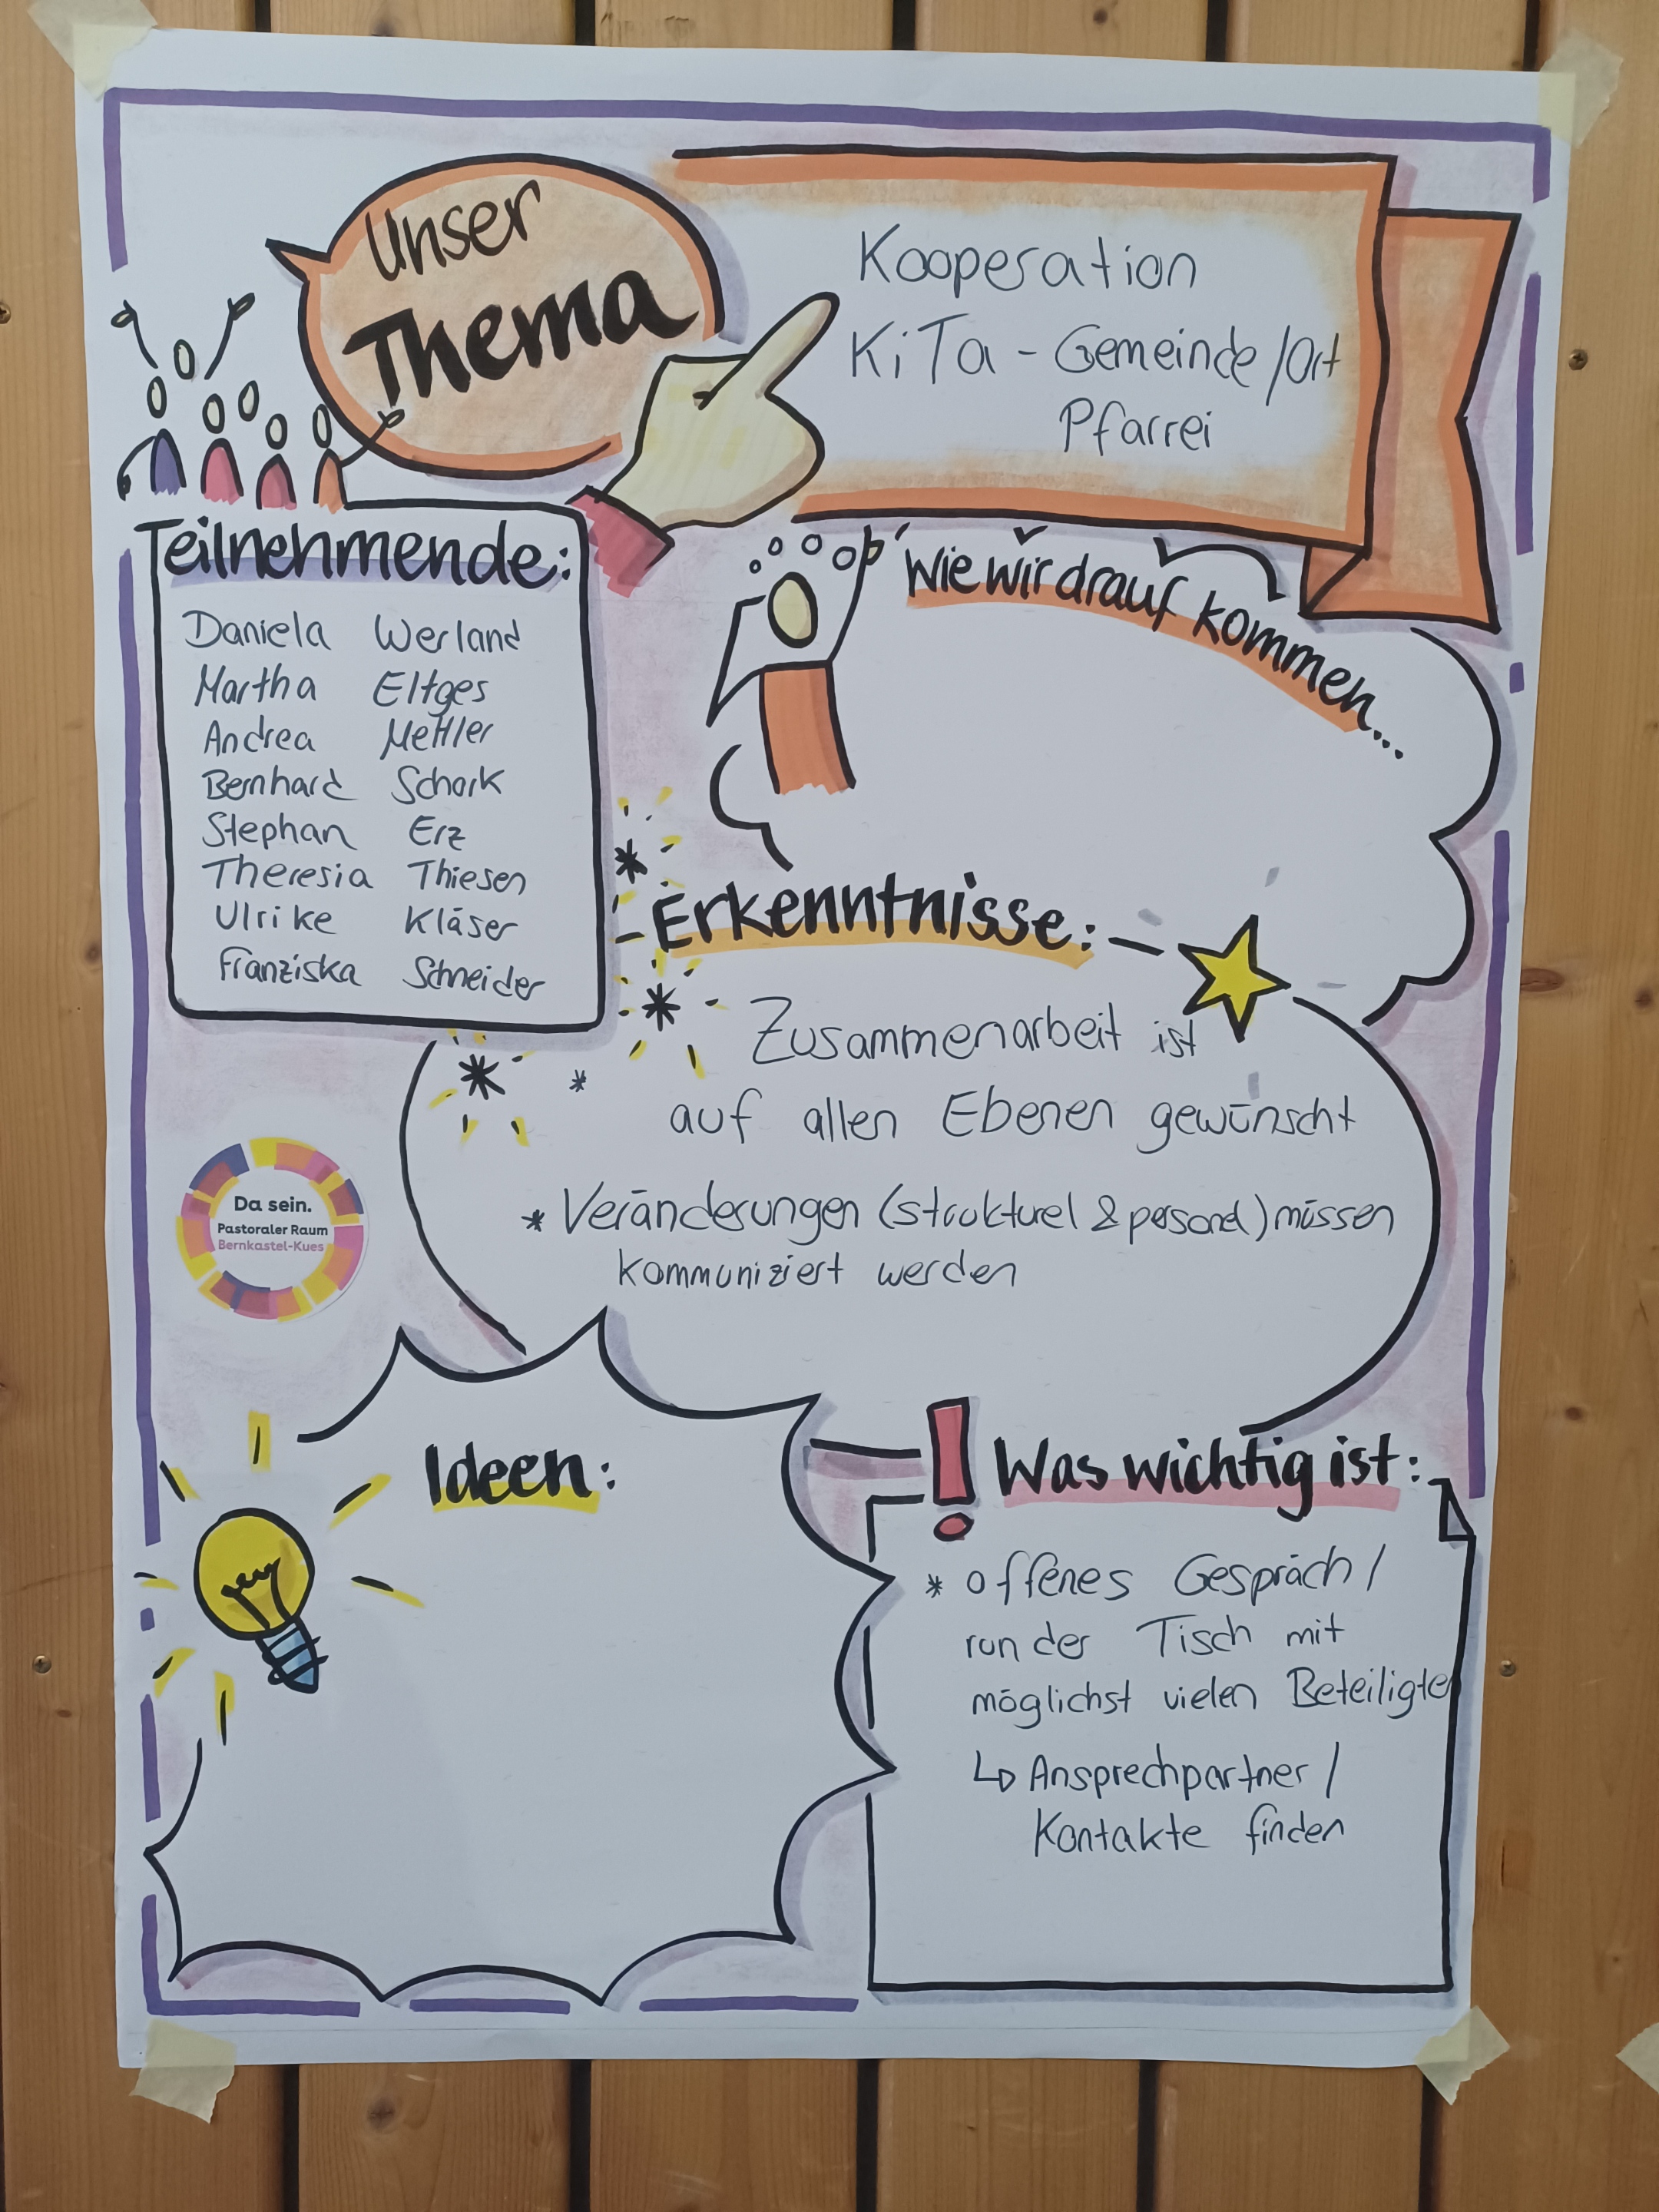 Unser
Thema
Kooperation
KiTa - Gemeinde/Ort
Pfarrei
Teilnehmende:
Daniela Werland
Martha Eltges
Andrea Mettler
Bernhard Schork
Stephan Erz
Theresia Thiesen
Ulrike Kläser
Franziska Schneider
Wie wir drauf kommen...
Erkenntnisse:
* Zusammenarbeit ist
auf allen Ebenen gewünscht
* Veränderungen (strukturel & personel) müssen
kommuniziert werden
Da sein.
Pastoraler Raum
Bernkastel-Kues
Ideen:
! Was wichtig ist:
* offenes Gespräch/
runder Tisch mit
möglichst vielen Beteiligten
↳ Ansprechpartner/
Kontakte finden